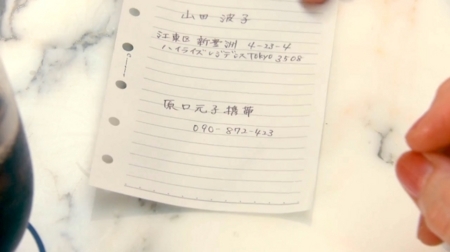 山田波子
江東区新豊洲 4-23-4
ハイライズレジデンスTokyo 3508
原口元子携帯
090-872-423